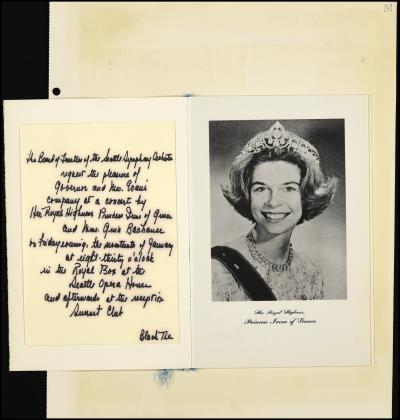 The Board of Trustees of the Seattle Symphony Orchestra
request the pleasure of
Governor and Mrs. Evans'
company at a concert by
Her Royal Highness Princess Irene of Greece
and Mme. Gina Bachauer
on Friday evening, the of January
at eight-thirty o'clock
in the Royal Box at the
Seattle Opera House
and afterwards at the reception
Sunset Club
Black Tie
Her Royal Highness,
Princess Irene of Greece